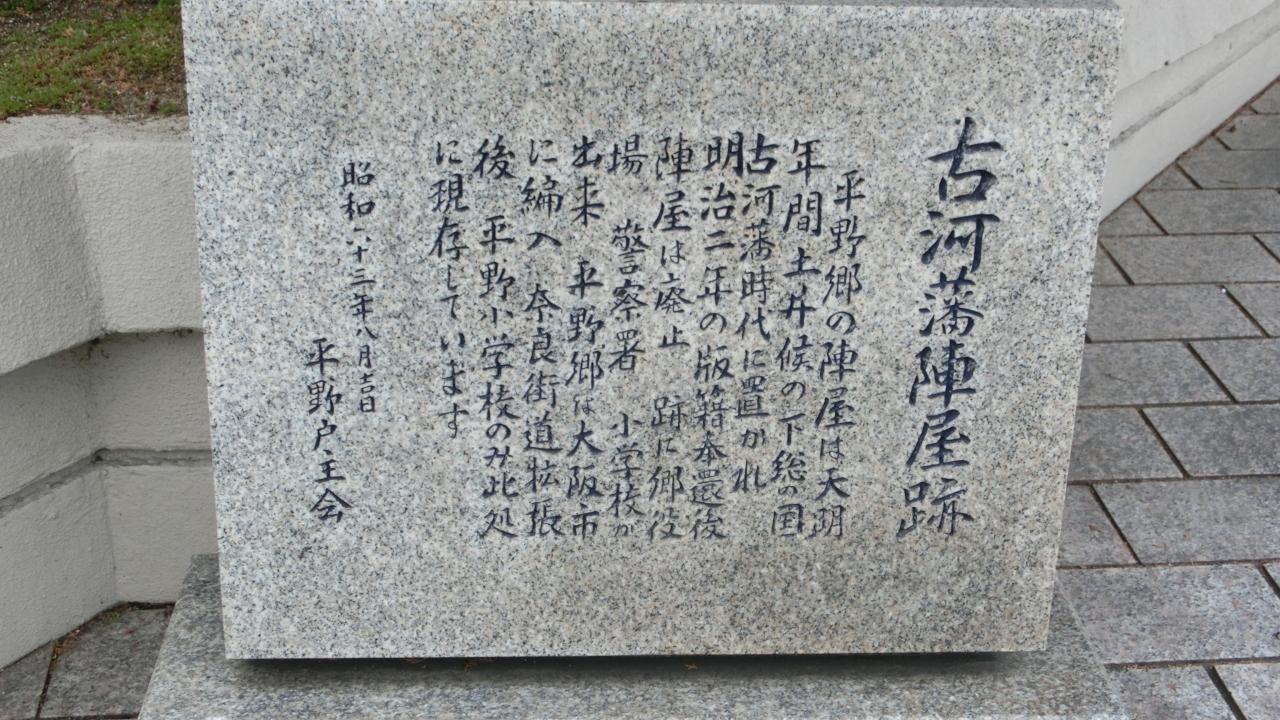 古河藩陣屋跡
平野郷の陣屋は天明
年間土井候の下総の国
古河藩時代に置かれ
明治二年の版籍奉還後
陣屋は廃止 跡に郷役
場 警察署 小学校が
出来 平野郷は大阪市
に編入 奈良街道拡張
後 平野小学校のみ此処
に現存しています
昭和六十三年八月吉日
平野戸主会